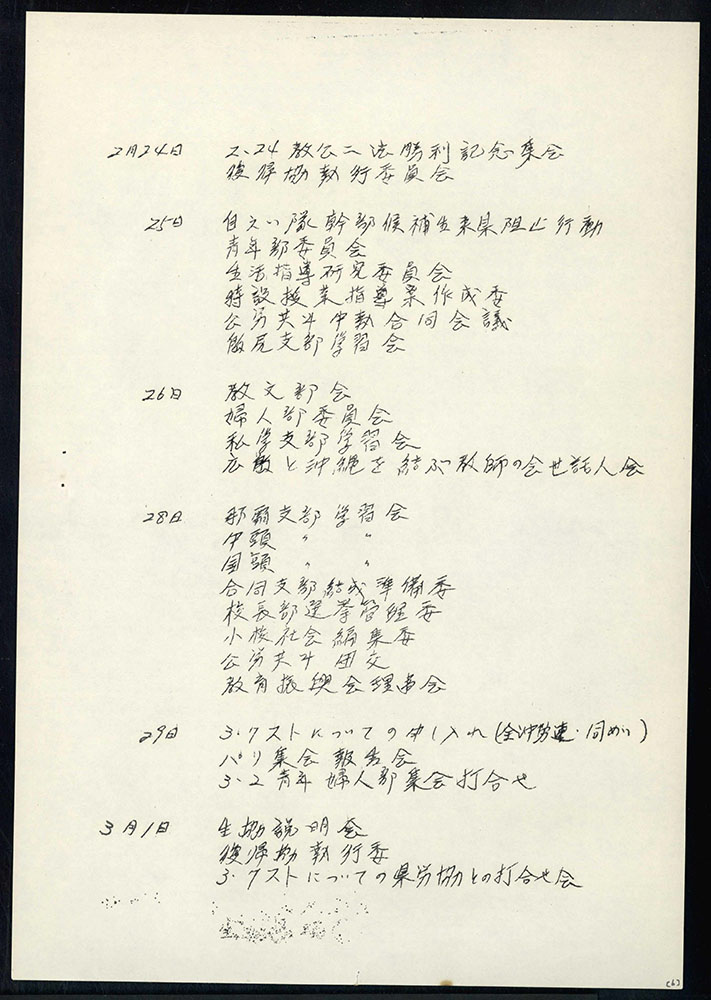 2月24日 2.24教公二法勝利記念集会
復帰協執行委員会
25日 自えい隊幹部候補生来県阻止行動
青年部委員会
生活指導研究委員会
特設授業指導案作成委
公労共斗中執合同会議
支部学習会
26日 教文部会
婦人部委員会
私学支部学習会
広島と沖縄を結ぶ教師の会世話人会
28日 那覇支部学習会
中頭 〃 〃
国頭 〃 〃
合同支部結成準備委
校長部選挙管理委
小校社会編集委
公労共斗団交
教育振興会理事会
29日 3.7ストについての申し入れ(全沖労連・同めい)
パリ集会報告会
3.2青年婦人部集会打合せ
3月1日 生協説明会
復帰協執行委
3.7ストについての県労協との打合せ会
(6)